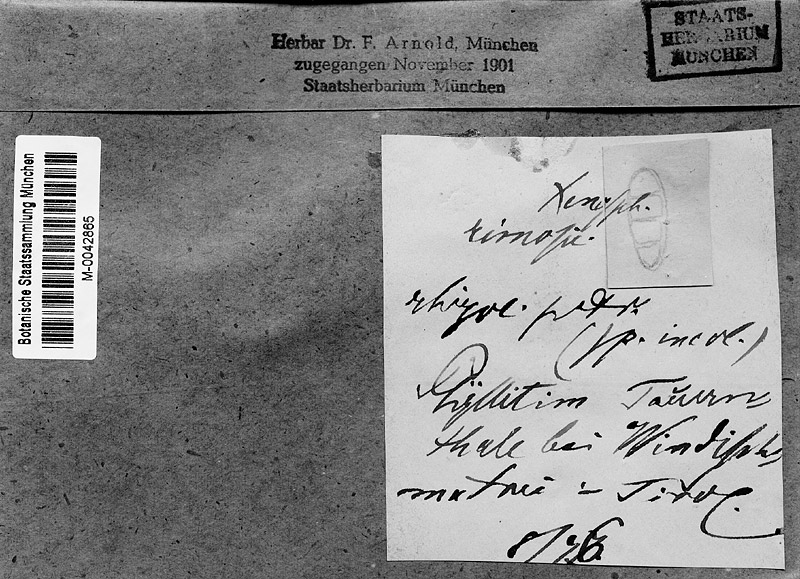 Herbar Dr. F. Arnold, München
zugegangen November 1901
Staatsherbarium München
STAATS-
HERBARIUM
MÜNCHEN
Botanische Staatssammlung München
M-0042865
Xenosph.
rimosic.
rhizoc. petr.
(sp. incol.)
Phyllit im Tauern
thale bei Windisch
matrei in Tirol